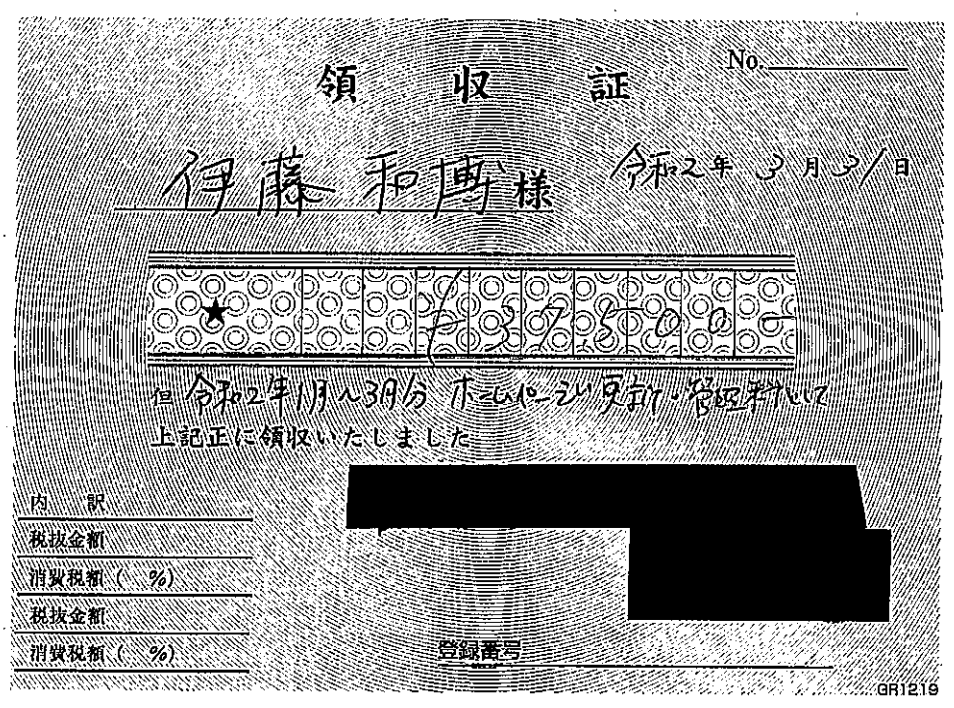 領収証
No.
伊藤和博様
令和2年3月31日
★ ¥37,500-
但 令和2年1月～3月分 ホームページ更新・管理料として
上記正に領収いたしました
内訳
税抜金額
消費税額( %)
税抜金額
消費税額( %)
登録番号
GR1219